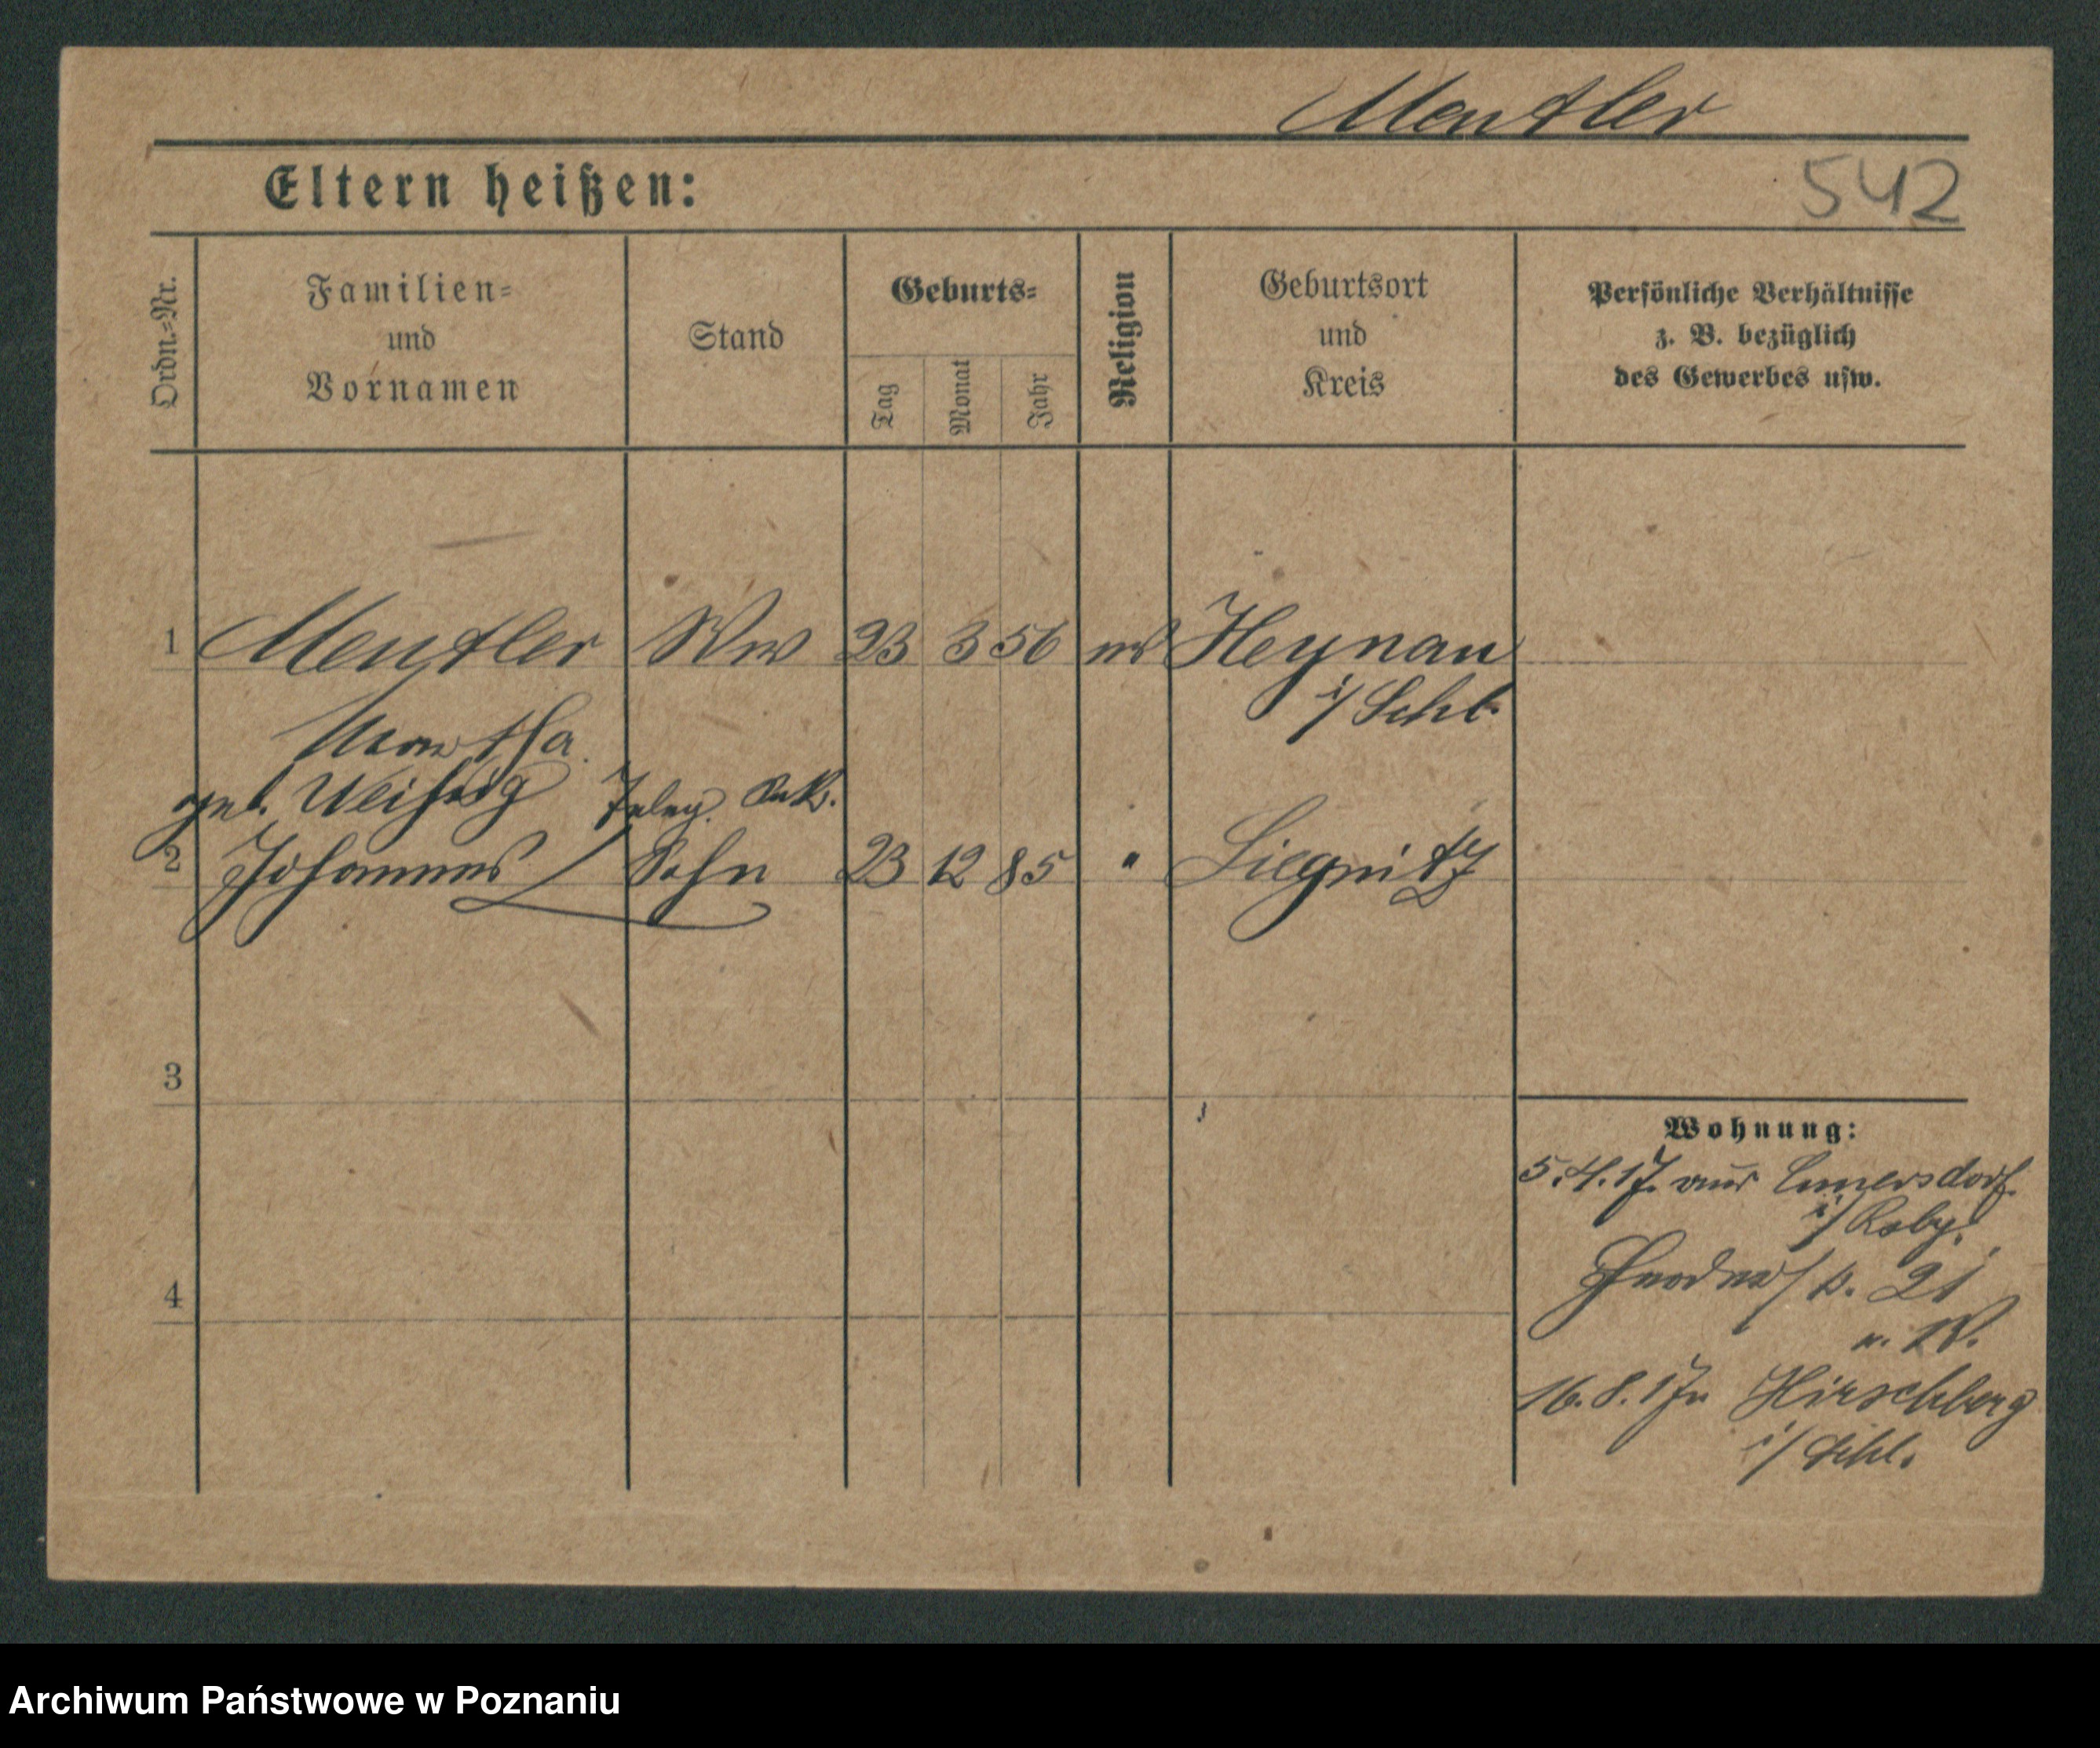 Mentler
Eltern heißen:
542
Ordn.=Nr.
Familien=
und
Vornamen
Stand
Geburts=
Tag
Monat
Jahr
Religion
Geburtsort
und
Kreis
Persönliche Verhältnisse
z. B. bezüglich
des Gewerbes usw.
1 Mentler Ww 23 3 56 Heynau
i/ Schl.
Martha
geb. Weihsig Teleg. Sek.
2 Johannes Sohn 23 12 85 " Liegnitz
3
4
Wohnung:
5.4.17. aus
i/ Rsbg.
21
16.8.17 n Hirschberg
i/ Schl.
Archiwum Państwowe w Poznaniu